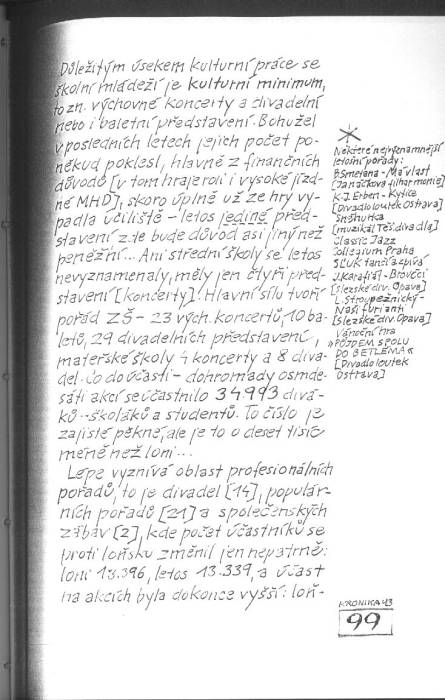 Důležitým úsekem kulturní práce se
školní mládeží je kulturní minimum,
to zn. výchovné koncerty a divadelní
nebo i baletní představení. Bohužel
v posledních letech jejich počet po-
někud poklesl, hlavně z finančních
důvodů [v tom hraje roli i vysoké jízd-
né MHD], skoro úplně už ze hry vy-
padla učiliště - letos jediné před-
stavení z.te bude důvod asi jiný než
peněžní... Ani střední školy se letos
nevyznamenaly, měly jen čtyři před-
stavení [koncerty]. Hlavní sílu tvoří
pořád ZŠ - 23 vých. koncertů, 10 ba-
letů, 29 divadelních představení,
mateřské školy 4 koncerty a 8 diva-
del. Co do účasti - dohromady osmde-
sáti akcí se účastnilo 34.993 divá-
ků - školáků a studentů. To číslo je
zajisté pěkné, ale je to o deset tisíc
méně než loni...
Lépe vyznívá oblast profesionálních
pořadů, to je divadel [14], populár-
ních pořadů [21] a společenských
zábav [2], kde počet účastníků se
proti loňsku změnil jen nepatrně:
loni 13.396, letos 13.339, a účast
na akcích byla dokonce vyšší: loň-
*
Některé nejvýznamnější
letošní pořady:
B. Smetana - Má vlast
[Janáčkova filharmonie]
K. J. Erben - Kytice
[Divadlo loutek Ostrava]
Sněhurka
[muzikál Těš. divadla]
Classic Jazz
Collegium Praha
SĽUK tančí a zpívá
J. Karafiát - Broučci
[Slezské div. Opava]
L. Stroupežnický -
Naši furianti
[Slezské div. Opava]
Vánoční hra
»PŮJDEM SPOLU
DO BETLÉMA«
[Divadlo loutek
Ostrava]
KRONIKA 43
99